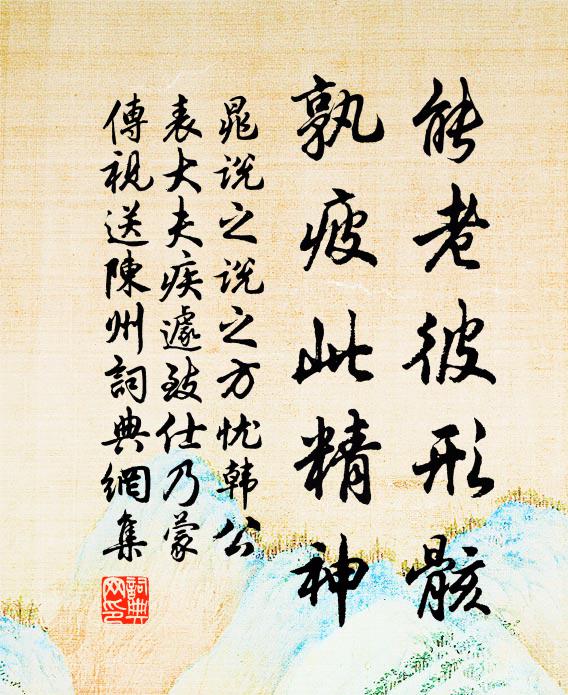 能老彼形骸
孰疲此精神
晁说之说之方忧韩公
表大夫疾遽致仕乃蒙
傳视送陳州詞典網集